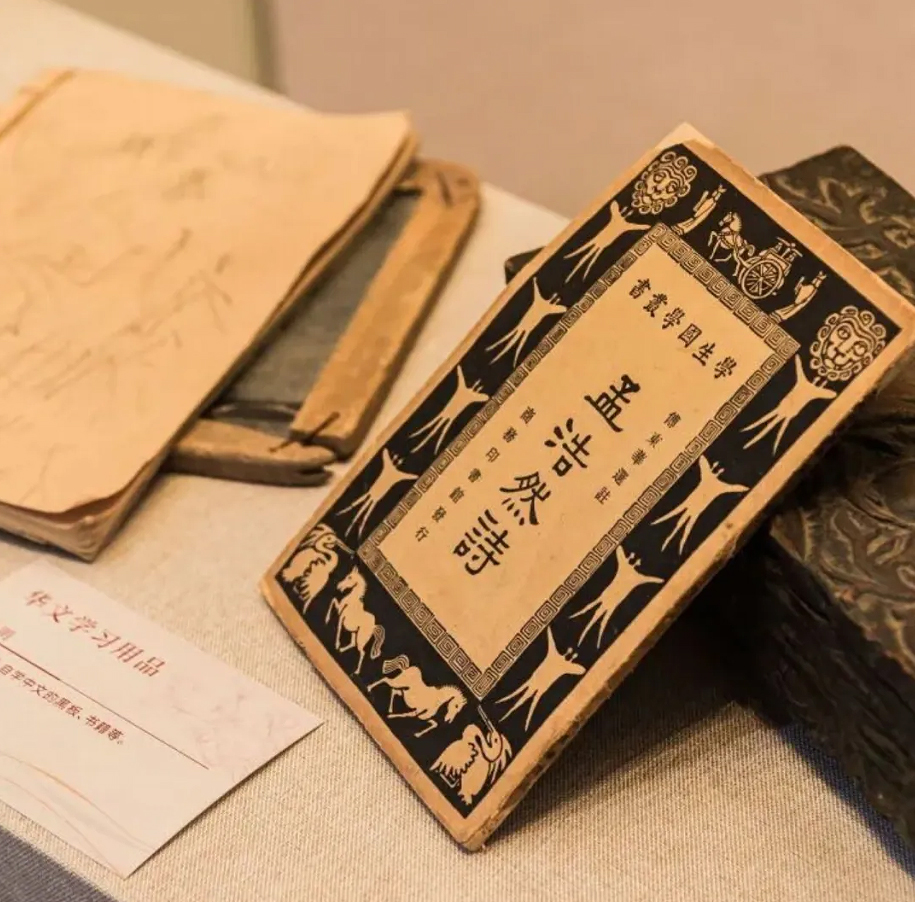 學生國學叢書
傅東華選註
孟浩然詩
商務印書館發行
华文学习用品
自学中文的黑板、书籍等。